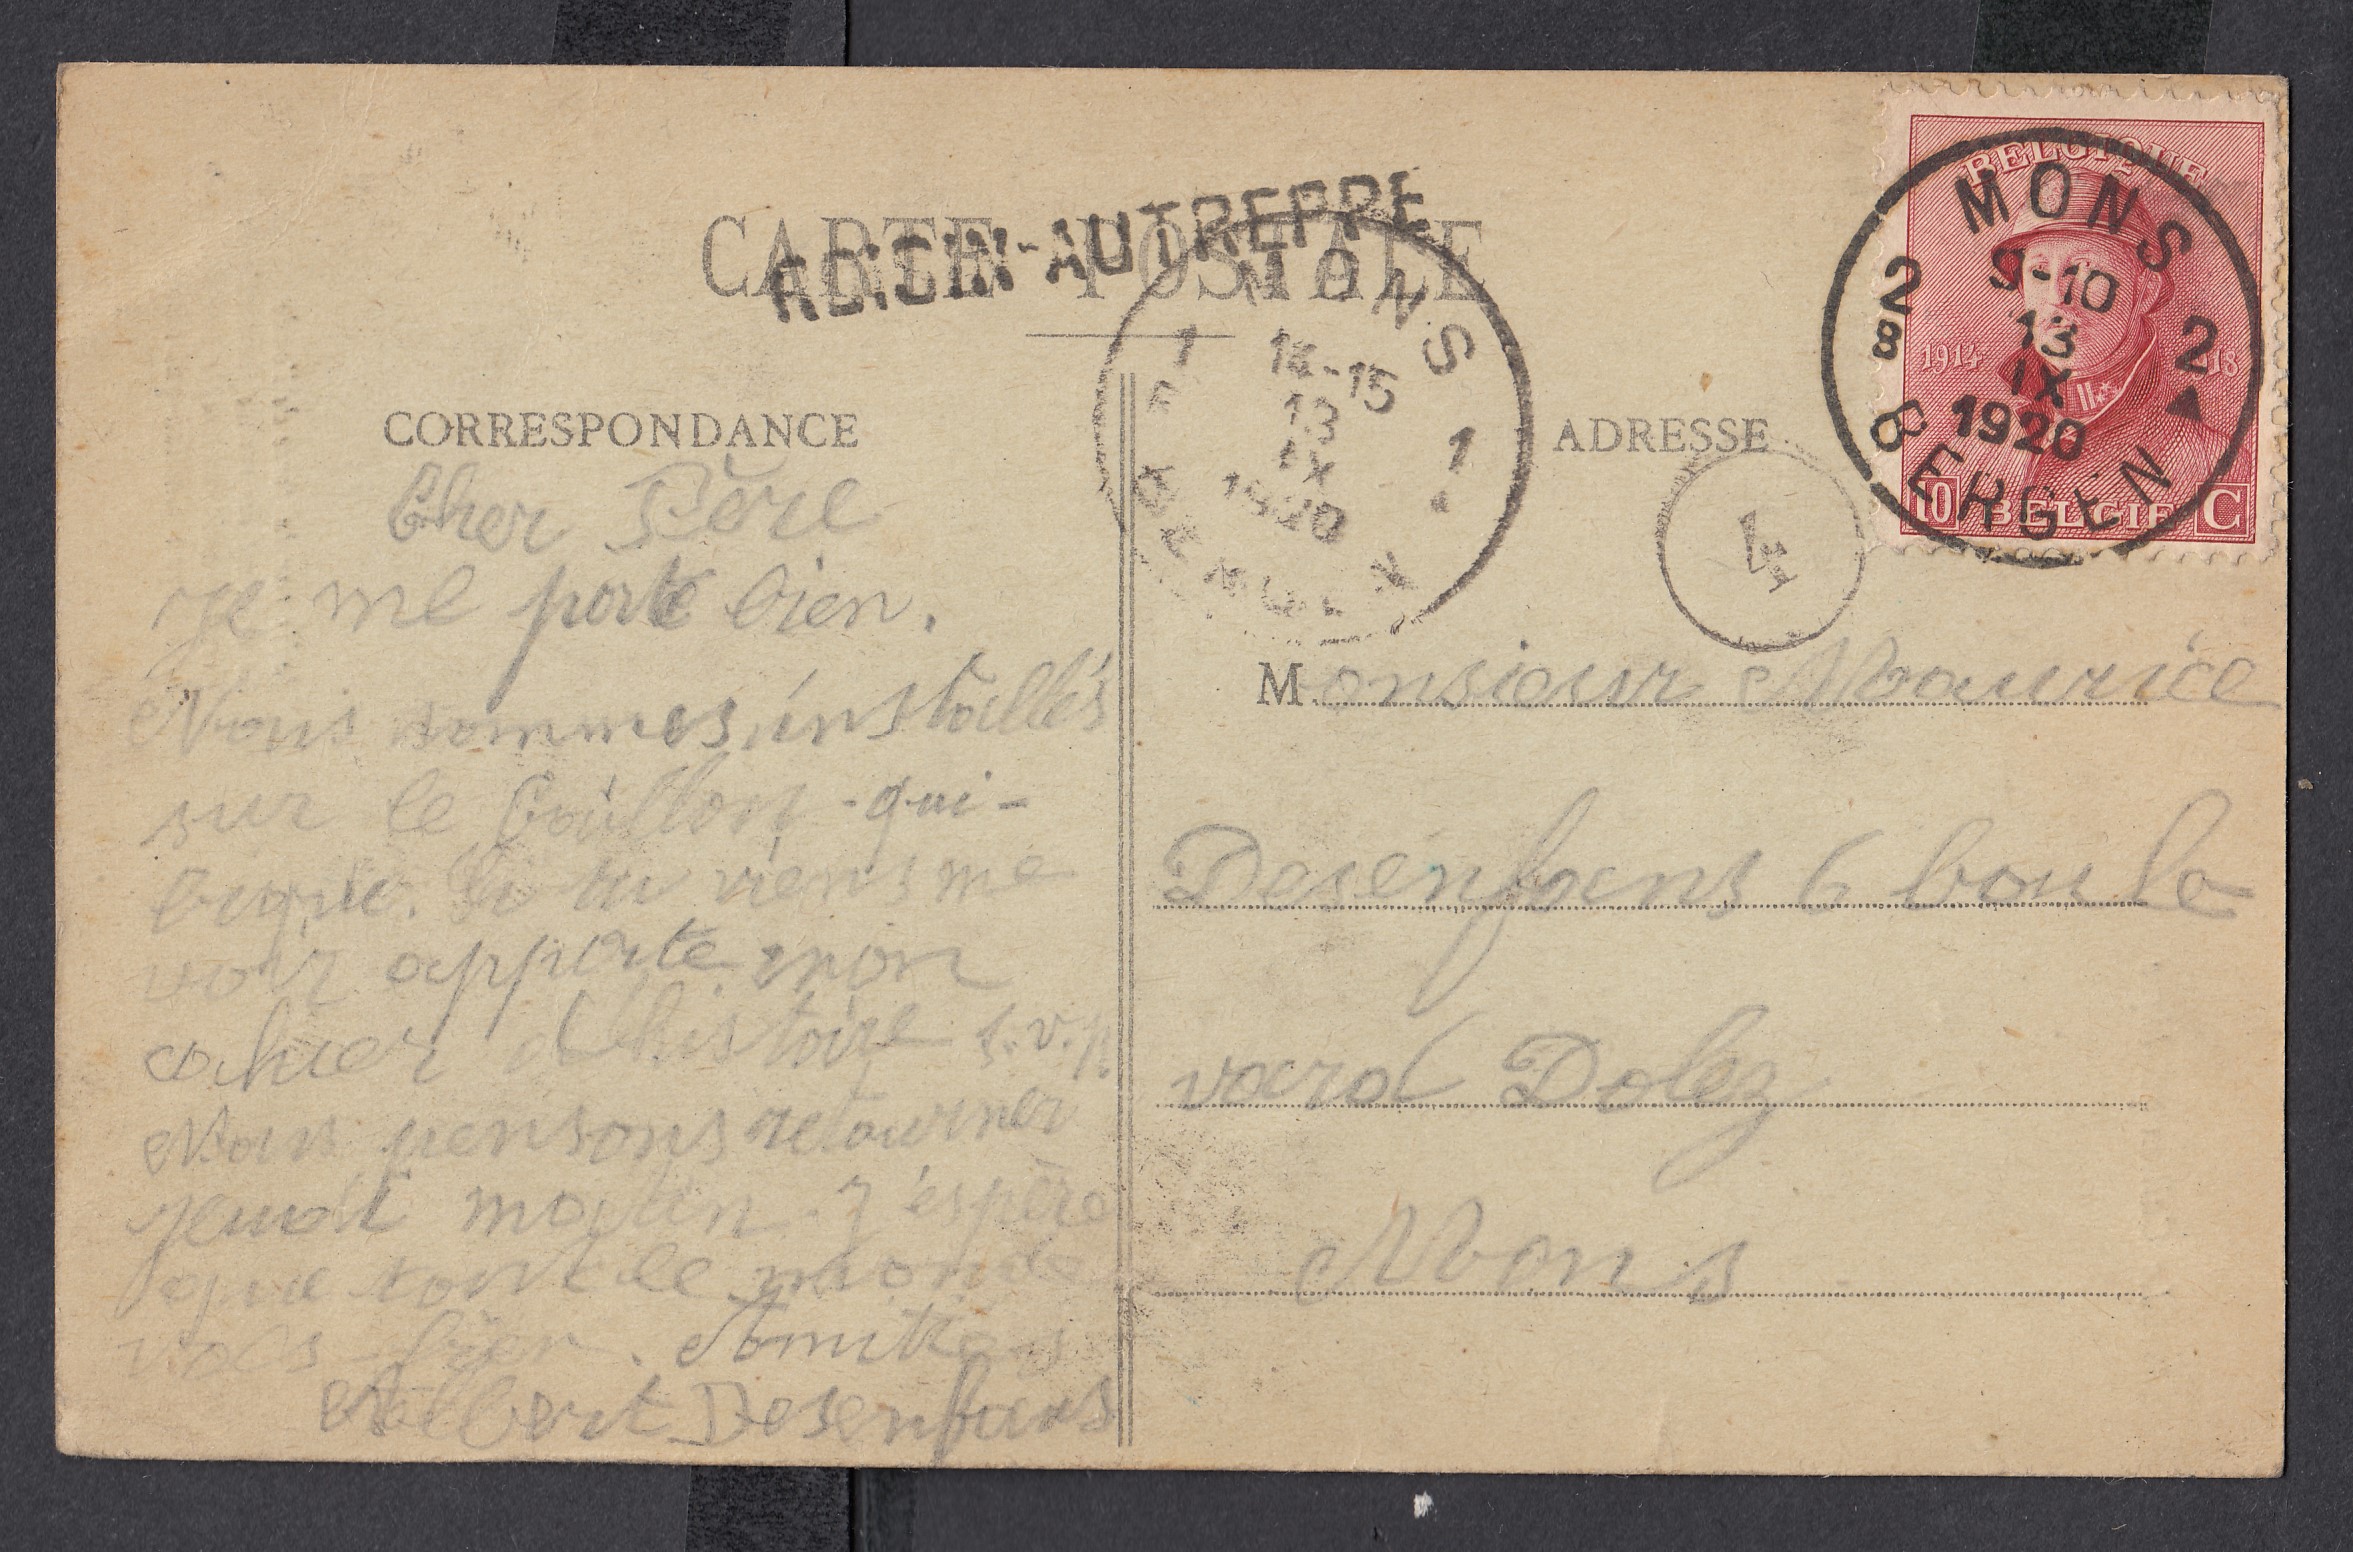 CARTE POSTALE
ROISIN-AUTREPPE
BELGIQUE
1914 18
10 BELGIE C
MONS
2 9-10 2
8 13
IX
1920
BERGEN
MONS
1 14-15
13 1
IX
1920
4
CORRESPONDANCE
Cher Père
je me porte bien.
Nous sommes installés
sur le Coullon - qui -
bique. Si tu viens me
voir apporte mon
cahier d'histoire s.v.p.
Nous pensons retourner
jeudi matin. J'espère
que tout le monde
vas bien. Amitiés
Albert Desenfans
ADRESSE
Monsieur Maurice
Desenfans 6 boule
vard Dolez
Mons